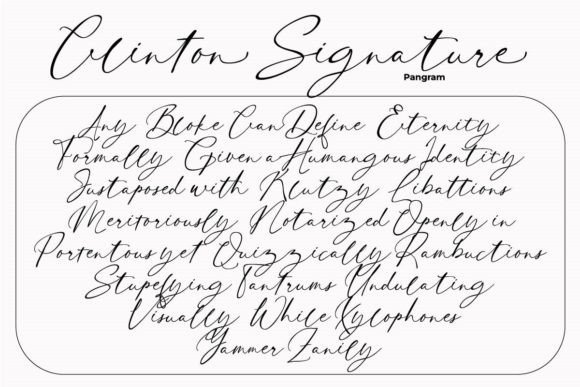 Clinton Signature
Pangram
Any Bloke Can Define Eternity
Formally Given a Humangous Identity
Justaposed with Klutzy Libattions
Meritoriously Notarized Openly in
Portentous yet Quizzically Rambuctions
Stupefying Tantrums Undulating
Visually While Xylophones
Yammer Zanily